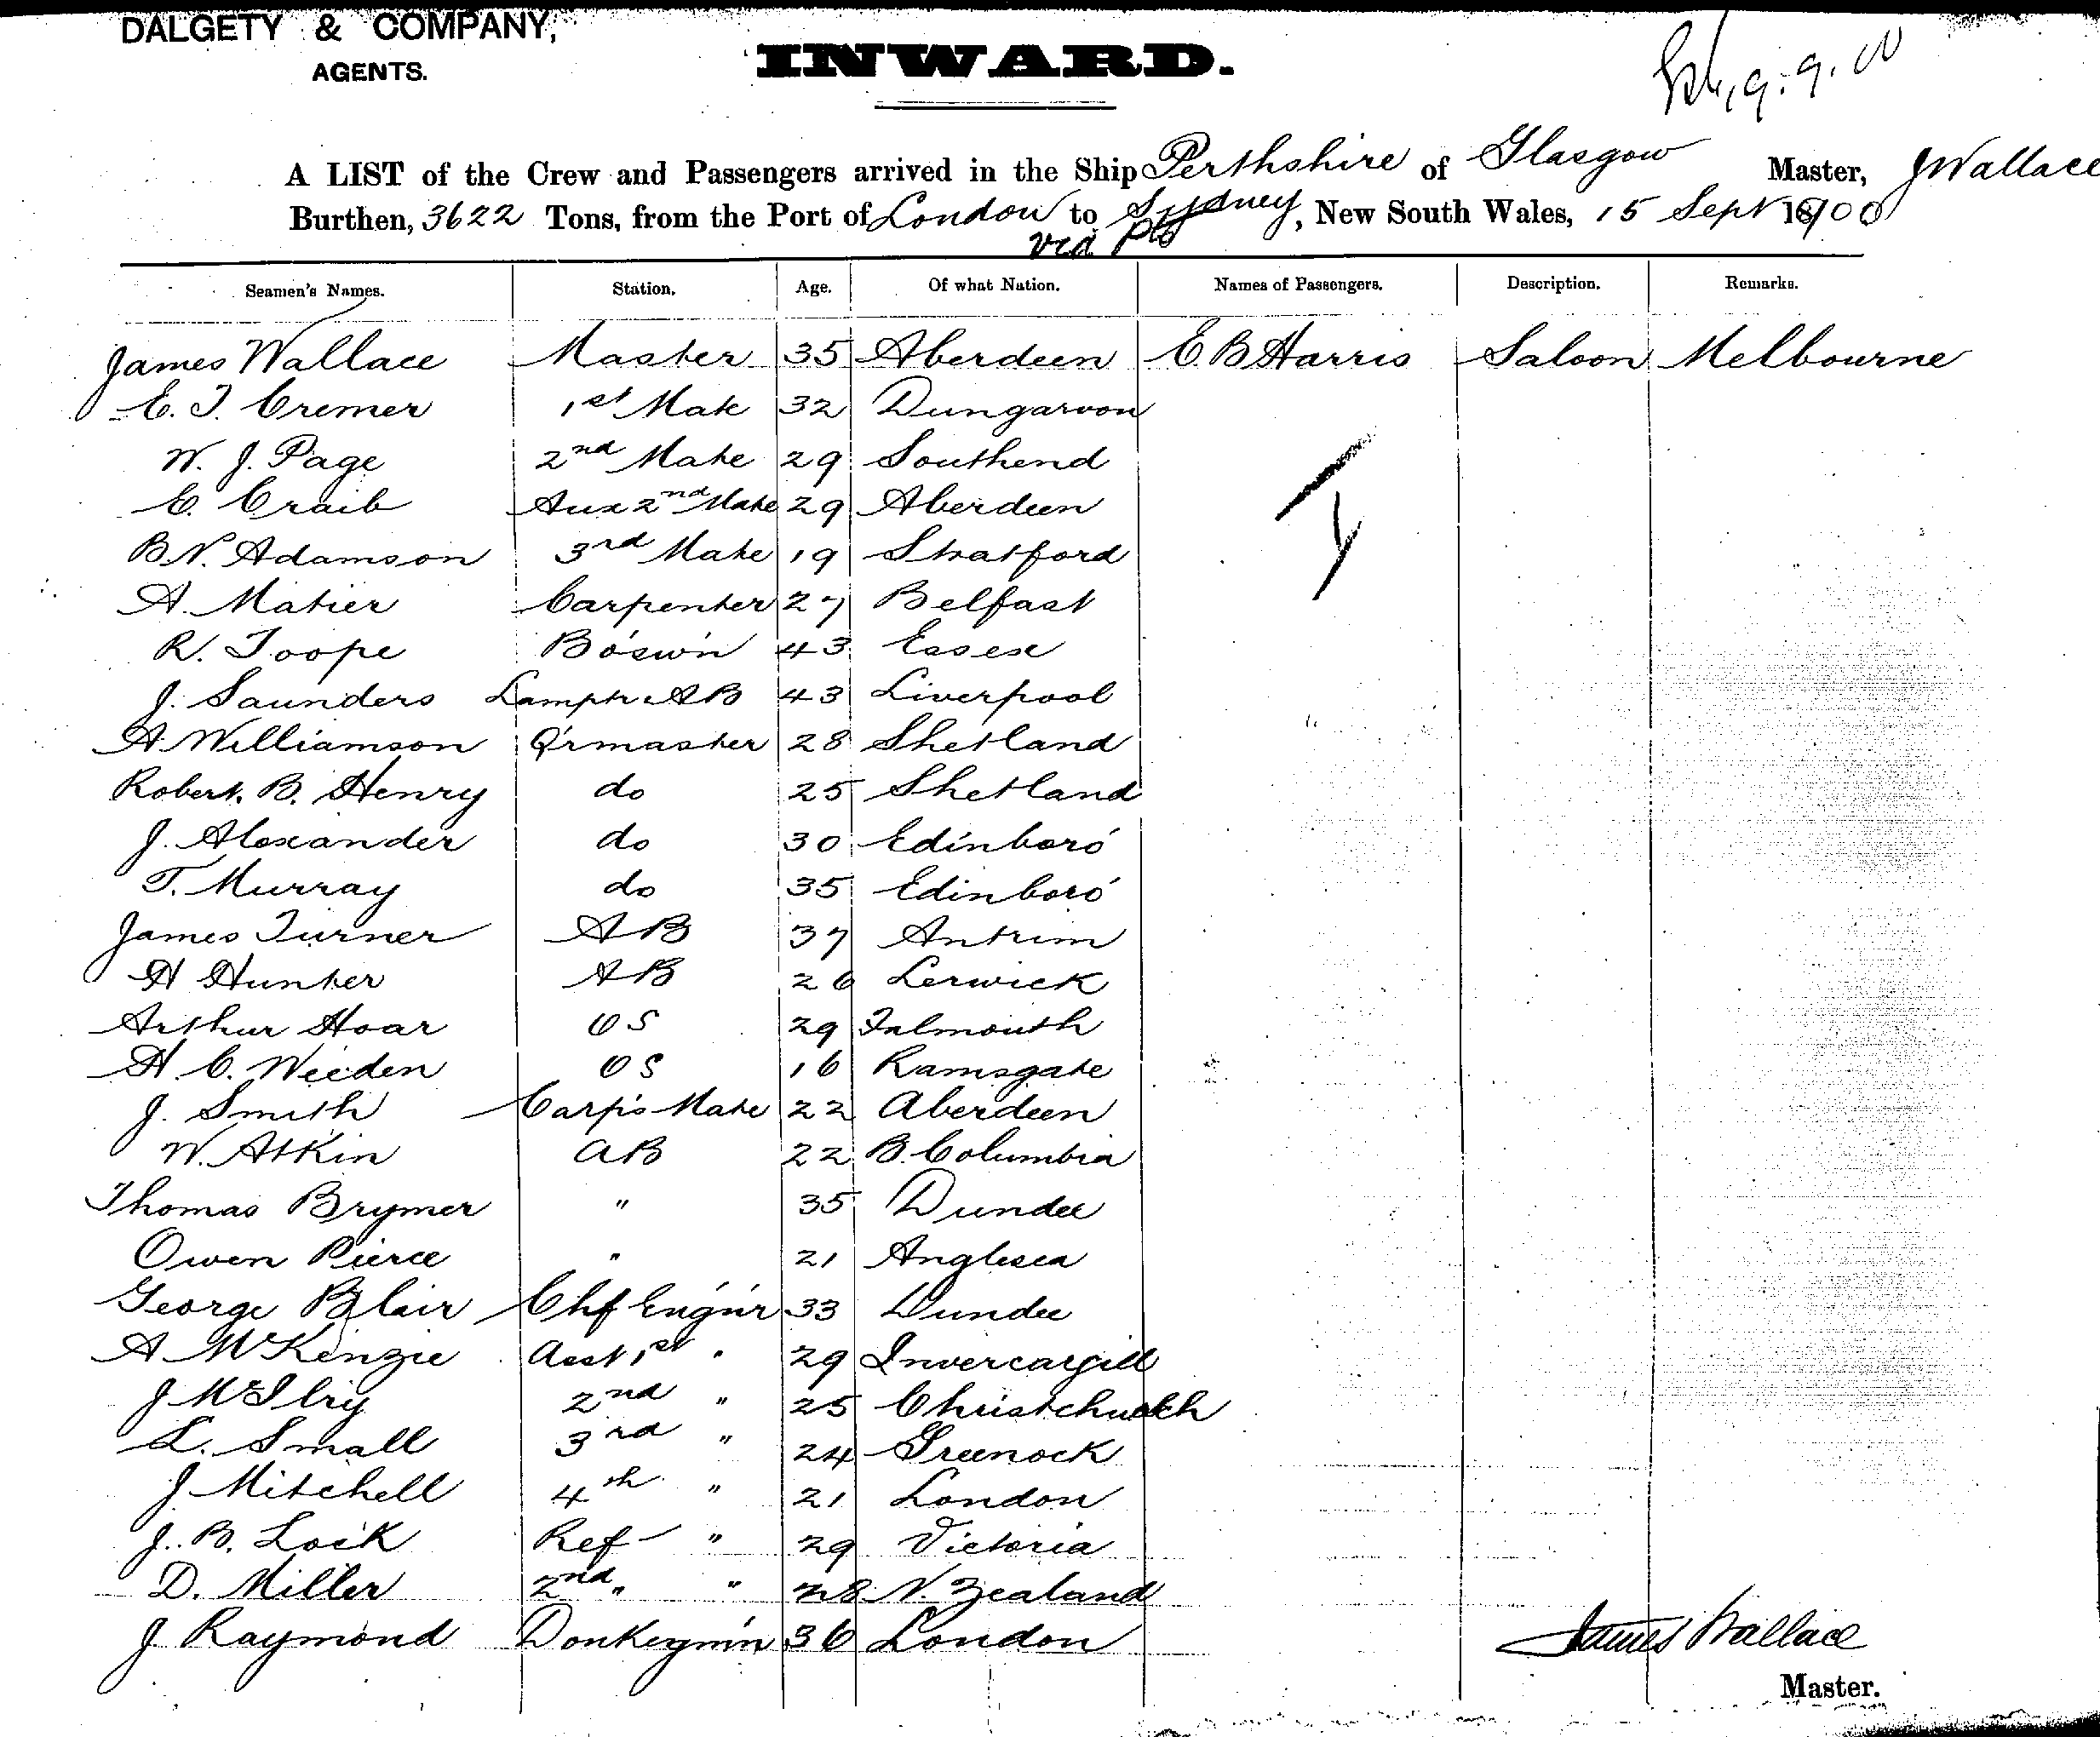 DALGETY & COMPANY,
AGENTS.
INWARD.
9.9.00
A LIST of the Crew and Passengers arrived in the Ship Perthshire of Glasgow Master, J Wallace
Burthen, 3622 Tons, from the Port of London to Sydney, New South Wales, 15 Sept 1900
via Pts
Seamen's Names. Station. Age. Of what Nation. Names of Passengers. Description. Remarks.
James Wallace Master 35 Aberdeen E B Harris Saloon Melbourne
E. J. Cremer 1st Mate 32 Dungarvon
W. J. Page 2nd Mate 29 Southend
E. Craib Aux 2nd Mate 29 Aberdeen
B N. Adamson 3rd Mate 19 Stratford
A. Matier Carpenter 27 Belfast
R. Toope Bo'sw'n 43 Essex
J. Saunders Lamptr AB 43 Liverpool
A. Williamson Q'rmaster 28 Shetland
Robert. B. Henry do 25 Shetland
J. Alexander do 30 Edinboro'
T. Murray do 35 Edinboro'
James Turner AB 37 Antrim
H Hunter AB 26 Lerwick
Arthur Hoar OS 29 Falmouth
H. C. Weeden OS 16 Ramsgate
J. Smith Carp's Mate 22 Aberdeen
W. Atkin AB 22 B. Columbia
Thomas Brymer " 35 Dundee
Owen Pierce " 21 Anglesea
George Blair Chf Eng'n'r 33 Dundee
A McKenzie Asst 1st " 29 Invercargill
J McIlry 2nd " 25 Christchurch
L. Small 3rd " 24 Greenock
J Mitchell 4th " 21 London
J. B. Lock Ref " 29 Victoria
D. Miller 2nd " " 28 N. Zealand
J. Raymond Donkeym'n 36 London
James Wallace
Master.